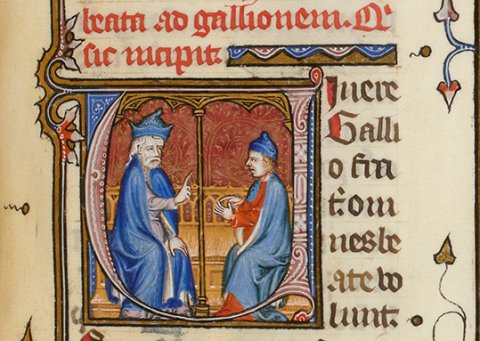 beata ad gallionem.
sic incipit.
Viuere
Galli
o fra
t̾ om
nes be
ate vo
lunt.